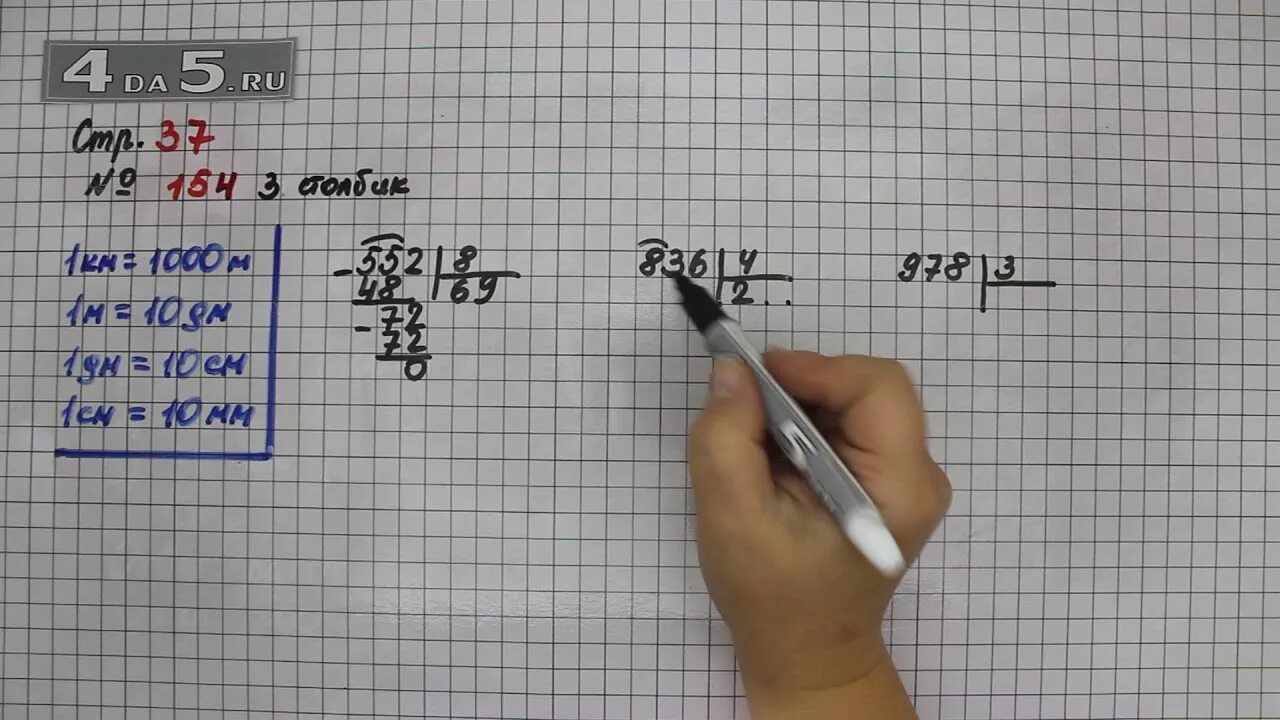 4DA5.RU
Стр. 37
№ 154 3 столбик
1км = 1000м
1м = 10дм
1дм = 10см
1см = 10мм
- 552 | 8
48 | 69
- 72
72
0
836 | 4
2 . .
978 | 3